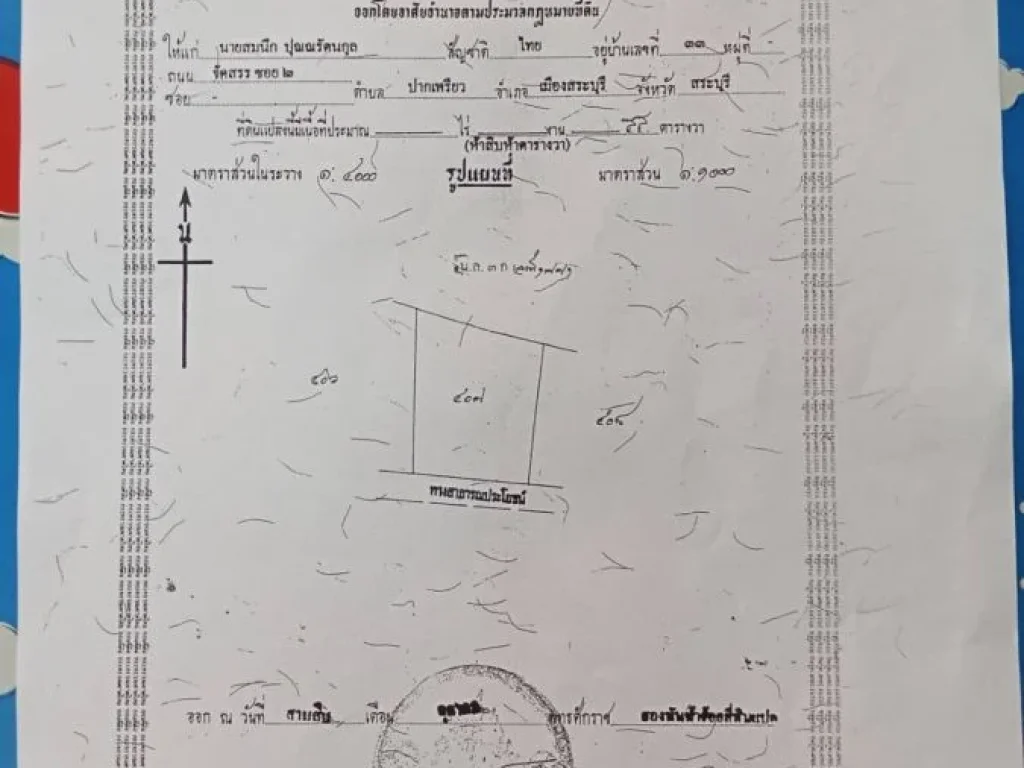 ออกโดยอาศัยอำนาจตามประมวลกฎหมายที่ดิน
ให้แก่ นายสมนึก ปุณณรัตนกุล สัญชาติ ไทย อยู่บ้านเลขที่ ๓๓ หมู่ที่ -
ถนน จัดสรร ซอย ๒
ซอย - ตำบล ปากเพรียว อำเภอ เมืองสระบุรี จังหวัด สระบุรี
ที่ดินแปลงนี้มีเนื้อที่ประมาณ ไร่ งาน ๕๕ ตารางวา
(ห้าสิบห้าตารางวา)
มาตราส่วนในระวาง ๑:๔๐๐๐ รูปแผนที่ มาตราส่วน ๑:๑๐๐๐
น
น.ส. ๓ ก
๔๐๖
๔๐๗
๔๐๘
ทางสาธารณประโยชน์
ออก ณ วันที่ สามสิบ เดือน ตุลาคม พุทธศักราช